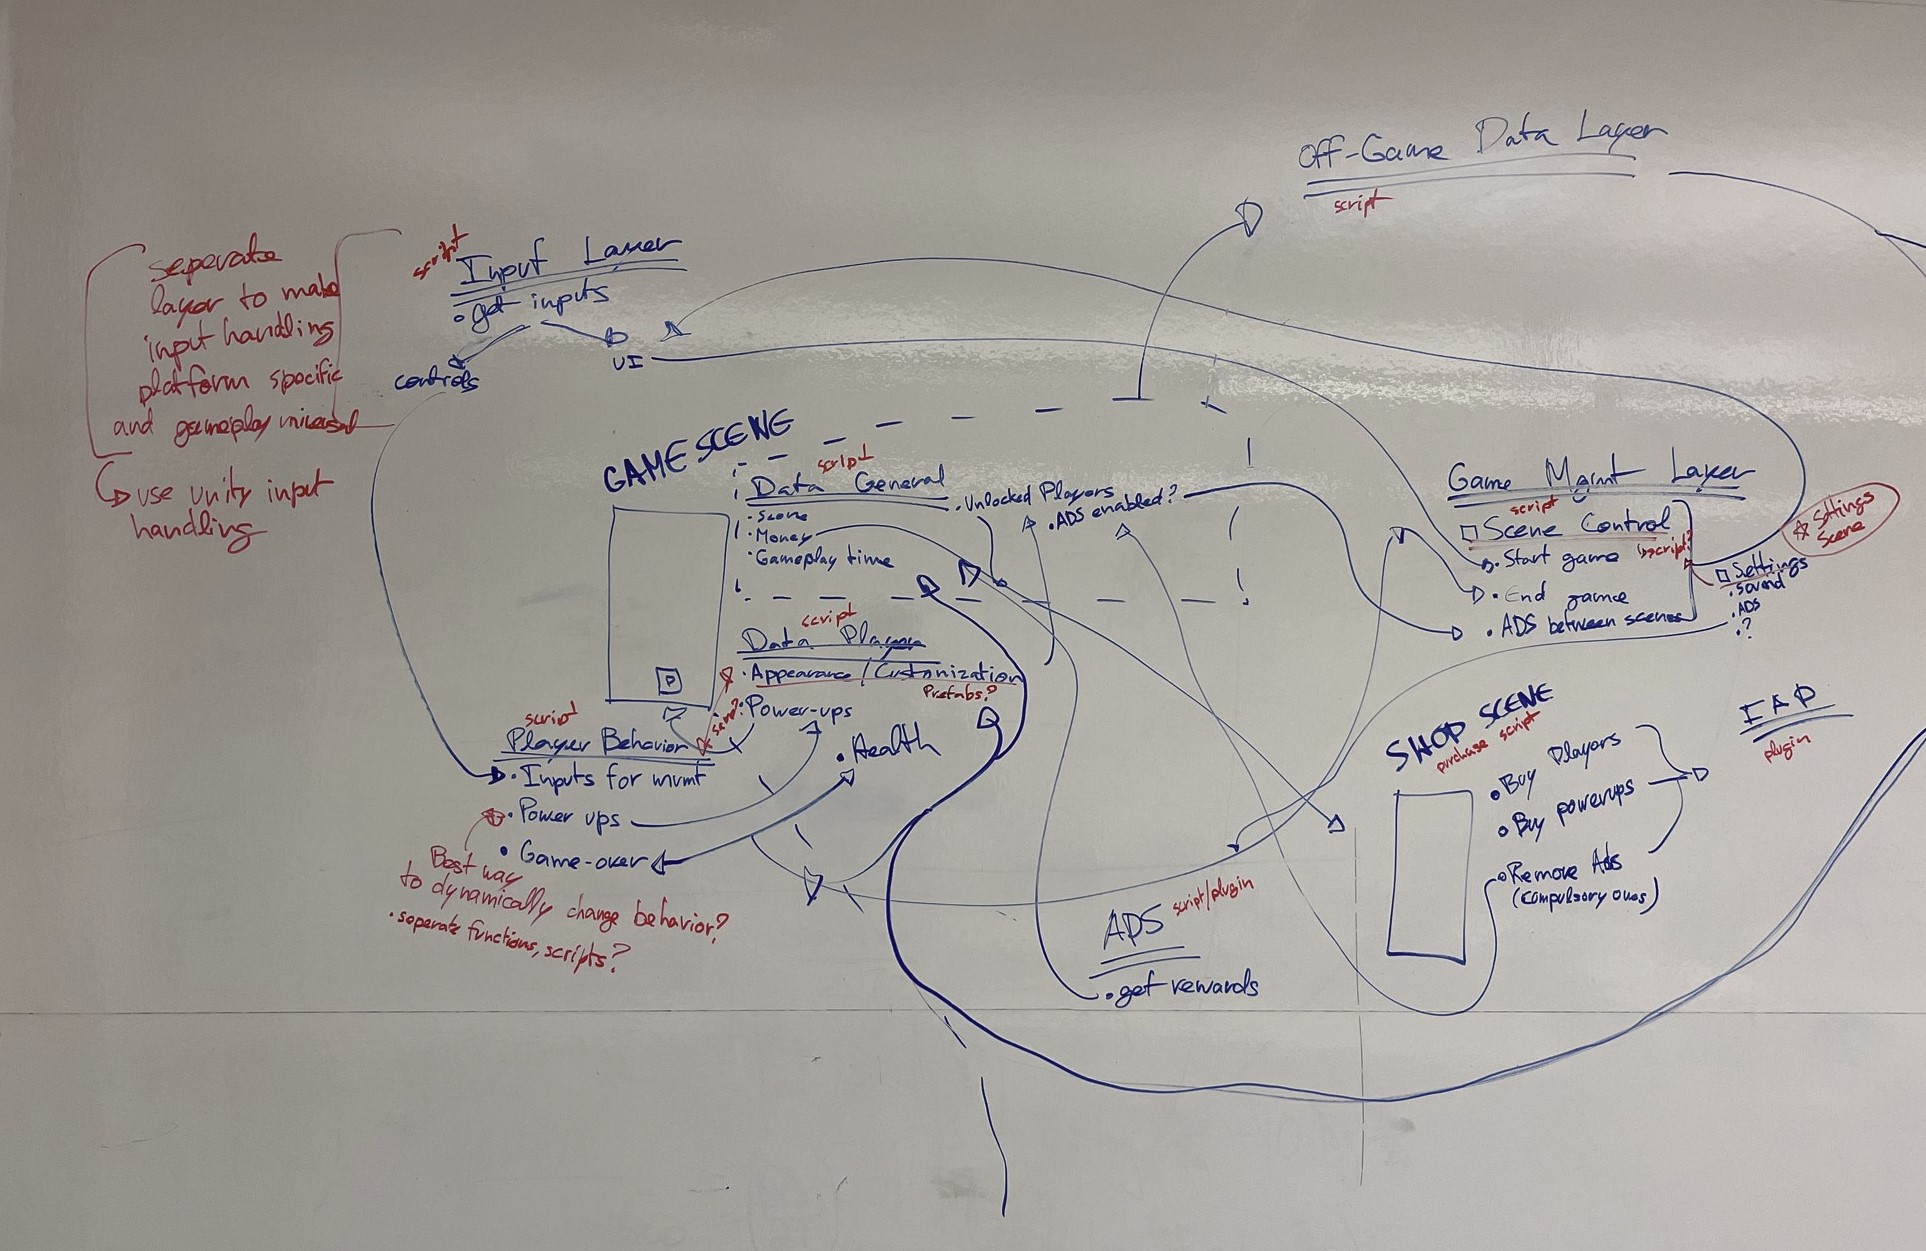 Off-Game Data Layer
script
seperate
layer to make
input handling
platform specific
and gameplay universal
use unity input
handling
script
Input Layer
• get inputs
UI
controls
GAME SCENE
script
Data General
• Score
• Money
• Gameplay time
• Unlocked Players
• ADS enabled?
script
Data Player
• Appearance / Customization
Prefabs?
• Power-ups
script?
• Health
P
script
Player Behavior
• Inputs for mvmt
• Power ups
• Game-over
Best way
to dynamically change behavior?
• seperate functions, scripts?
Game Mgmt Layer
script
Scene Control
• Start game
script?
• End game
• ADS between scenes
Settings
Scene
Settings
• sound
• ADS
• ?
SHOP SCENE
purchase script
• Buy Players
• Buy powerups
• Remove Ads
(compulsory ones)
IAP
plugin
ADS
script/plugin
• get rewards